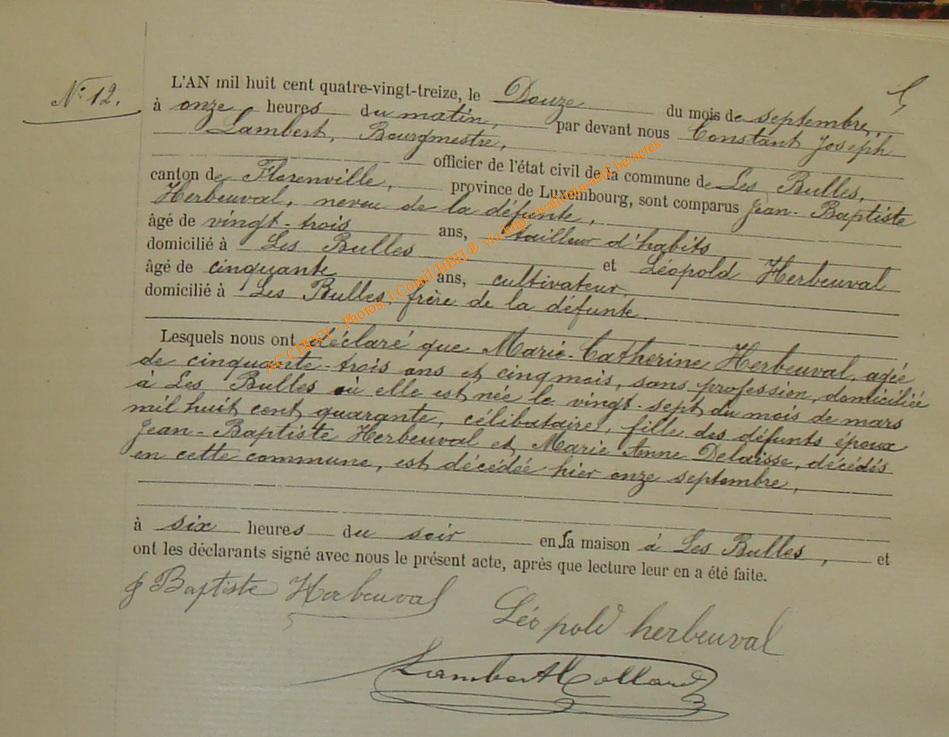 N° 12.
L'AN mil huit cent quatre-vingt-treize, le Douze du mois de septembre,
à onze heures du matin, par devant nous Constant Joseph
Lambert, Bourgmestre,
officier de l'état civil de la commune de Les Bulles,
canton de Florenville, province de Luxembourg, sont comparus Jean-Baptiste
Herbeuval, neveu de la défunte,
âgé de vingt-trois ans, tailleur d'habits
domicilié à Les Bulles et Léopold Herbeuval
âgé de cinquante ans, cultivateur
domicilié à Les Bulles, frère de la défunte.
Lesquels nous ont déclaré que Marie-Catherine Herbeuval, agée
de cinquante-trois ans et cinq mois, sans profession, domiciliée
à Les Bulles où elle est née le vingt-sept du mois de mars
mil huit cent quarante, célibataire, fille des défunts époux
Jean-Baptiste Herbeuval et Marie Anne Delaisse, décédés
en cette commune, est décédée hier onze septembre,
à six heures du soir en sa maison à Les Bulles, et
ont les déclarants signé avec nous le présent acte, après que lecture leur en a été faite.
J Baptiste Herbeuval
Léopold herbeuval
Lambert Collard